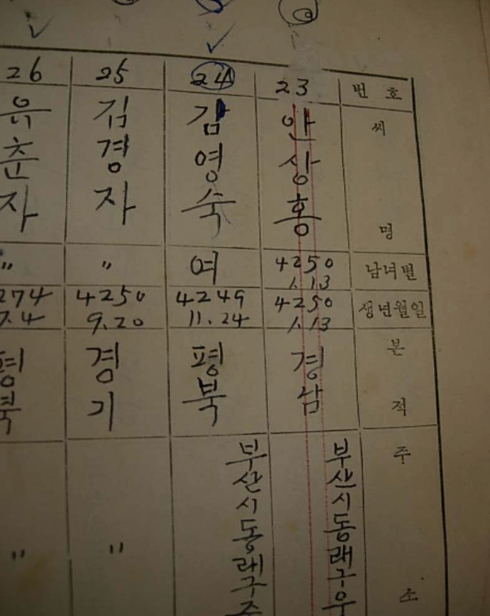 번호
씨명
남녀별
생년월일
본적
주소
23
안상홍
4250
1.13
4250
1.13
경남
부산시동래구우
24
김영숙
여
4249
11.24
평북
부산시동래구
25
김경자
"
4250
9.20
경기
"
26
유춘자
"
274
7.4
평북
"